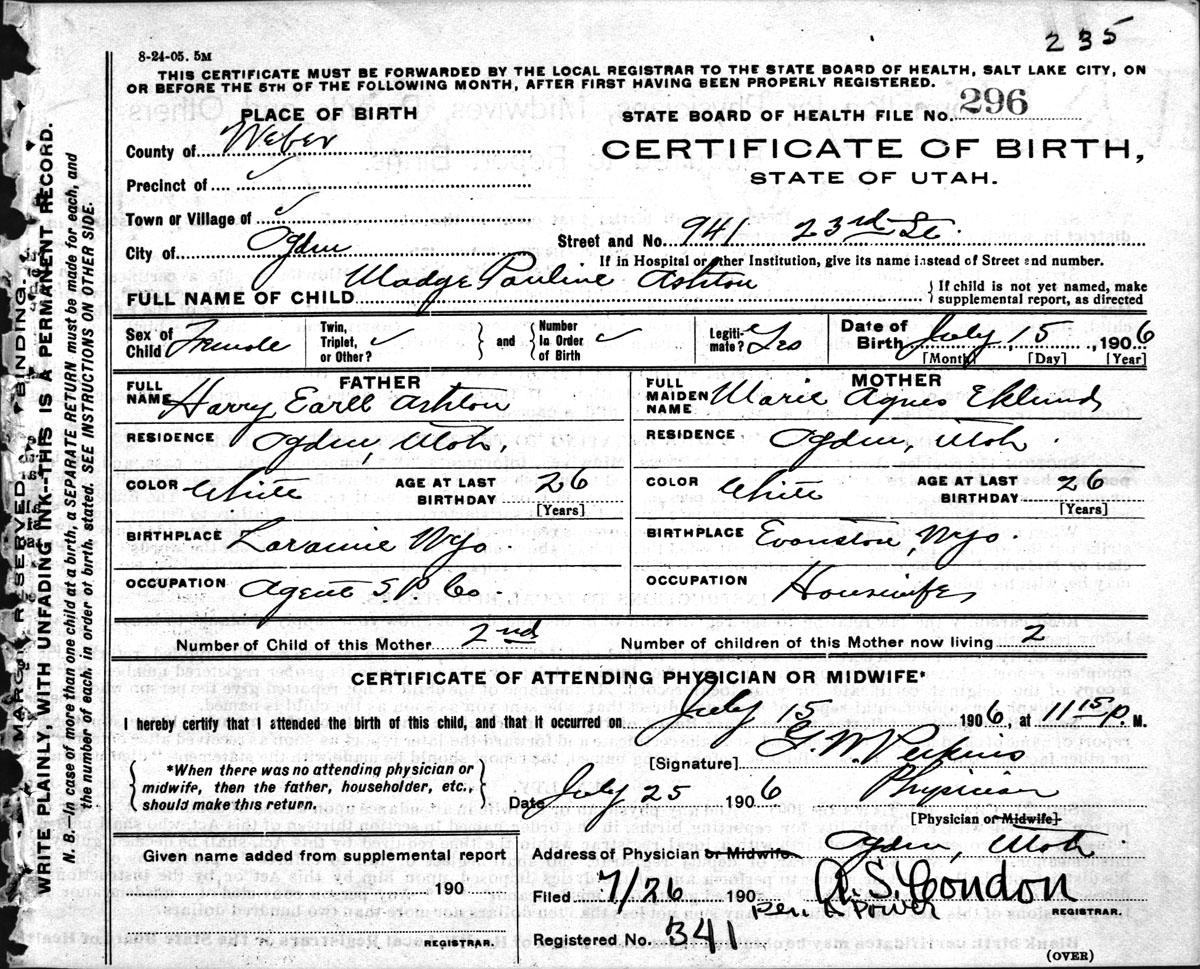 235
8-24-05. 5M
THIS CERTIFICATE MUST BE FORWARDED BY THE LOCAL REGISTRAR TO THE STATE BOARD OF HEALTH, SALT LAKE CITY, ON
OR BEFORE THE 5TH OF THE FOLLOWING MONTH, AFTER FIRST HAVING BEEN PROPERLY REGISTERED.
PLACE OF BIRTH
STATE BOARD OF HEALTH FILE No. 296
County of Weber
CERTIFICATE OF BIRTH,
STATE OF UTAH.
Precinct of
Town or Village of
City of Ogden
Street and No. 941 23rd St.
If in Hospital or other Institution, give its name instead of Street and number.
FULL NAME OF CHILD Madge Pauline Ashton
{ If child is not yet named, make supplemental report, as directed
Sex of Child Female
Twin, Triplet, or Other? } and { Number In Order of Birth
Legitimate? Yes
Date of Birth July 15, 1906
[Month] [Day] [Year]
FATHER
FULL NAME Harry Earll Ashton
RESIDENCE Ogden, Utah,
COLOR White AGE AT LAST BIRTHDAY 26
[Years]
BIRTHPLACE Laramie Wyo.
OCCUPATION Agent S P Co.
MOTHER
FULL MAIDEN NAME Marie Agnes Eklund
RESIDENCE Ogden, Utah.
COLOR White AGE AT LAST BIRTHDAY 26
[Years]
BIRTHPLACE Evanston, Wyo.
OCCUPATION Housewife
Number of Child of this Mother 2nd Number of children of this Mother now living 2
CERTIFICATE OF ATTENDING PHYSICIAN OR MIDWIFE*
I hereby certify that I attended the birth of this child, and that it occurred on July 15 1906, at 11 15 P. M.
[Signature] G. W. Perkins
{ *When there was no attending physician or midwife, then the father, householder, etc., should make this return. }
Date July 25 1906 Physician
[Physician or Midwife]
Given name added from supplemental report
190
REGISTRAR.
Address of Physician or Midwife Ogden, Utah
Filed 7/26 190 A. S. Condon
REGISTRAR.
Registered No. 341
(OVER)
MARGIN RESERVED FOR BINDING.
WRITE PLAINLY WITH UNFADING INK--THIS IS A PERMANENT RECORD.
N. B. In case of more than one child at a birth, a SEPARATE RETURN must be made for each, and
the number of each, in order of birth, stated. SEE INSTRUCTIONS ON OTHER SIDE.